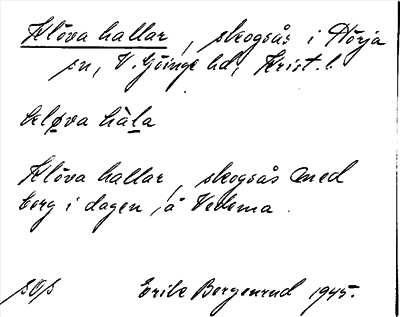 Klöva hallar, skogsås i Hörja
sn, V. Göinge hd, Krist. l.
kløva hàla
Klöva hallar, skogsås med
berg i dagen, å Vedema.
Erik Borgenrud 1945.